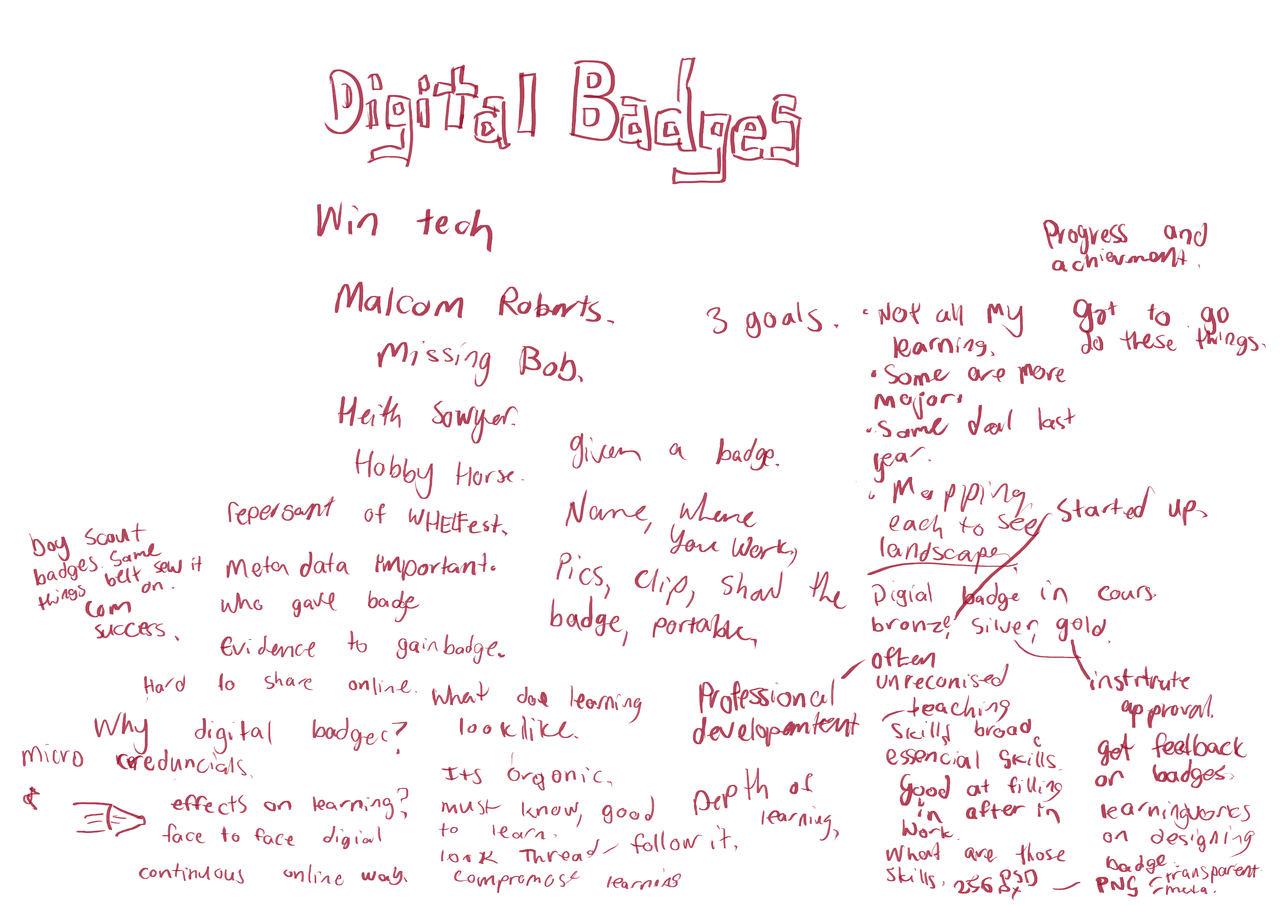 Digital Badges
Win tech
Malcom Roberts.
Missing Bob.
Heith Sowyer.
Hobby Horse.
repersant of WHELFest.
Meta data important.
who gave badge
Evidence to gain badge.
Boy scout
badges. Same
things belt sew it
on.
Com
success.
Hard to share online.
Why digital badges?
micro creduncials.
effects on learning?
face to face digial
continuous online way.
given a badge.
Name, where
you work,
Pics, clip, show the
badge, portable,
What doe learning
look like.
Its organic.
must know, good
to learn.
look Thread follow it.
compromose learning
Professional
developemtent
Depth of
learning,
3 goals.
• Not all my
learning.
• Some are more
major.
• Same deal last
year.
• Mapping
each to see
landscape
Progress and
achievment.
got to go
do these things.
Started up.
Digial badge in cours.
bronze, silver, gold.
often
unreconised
teaching
skills broad.
essencial skills.
Good at filling
in after in
work.
What are those
skills. 256
institute
approval.
get feedback
on badges.
learningworks
on designing
badge transparent
PNG